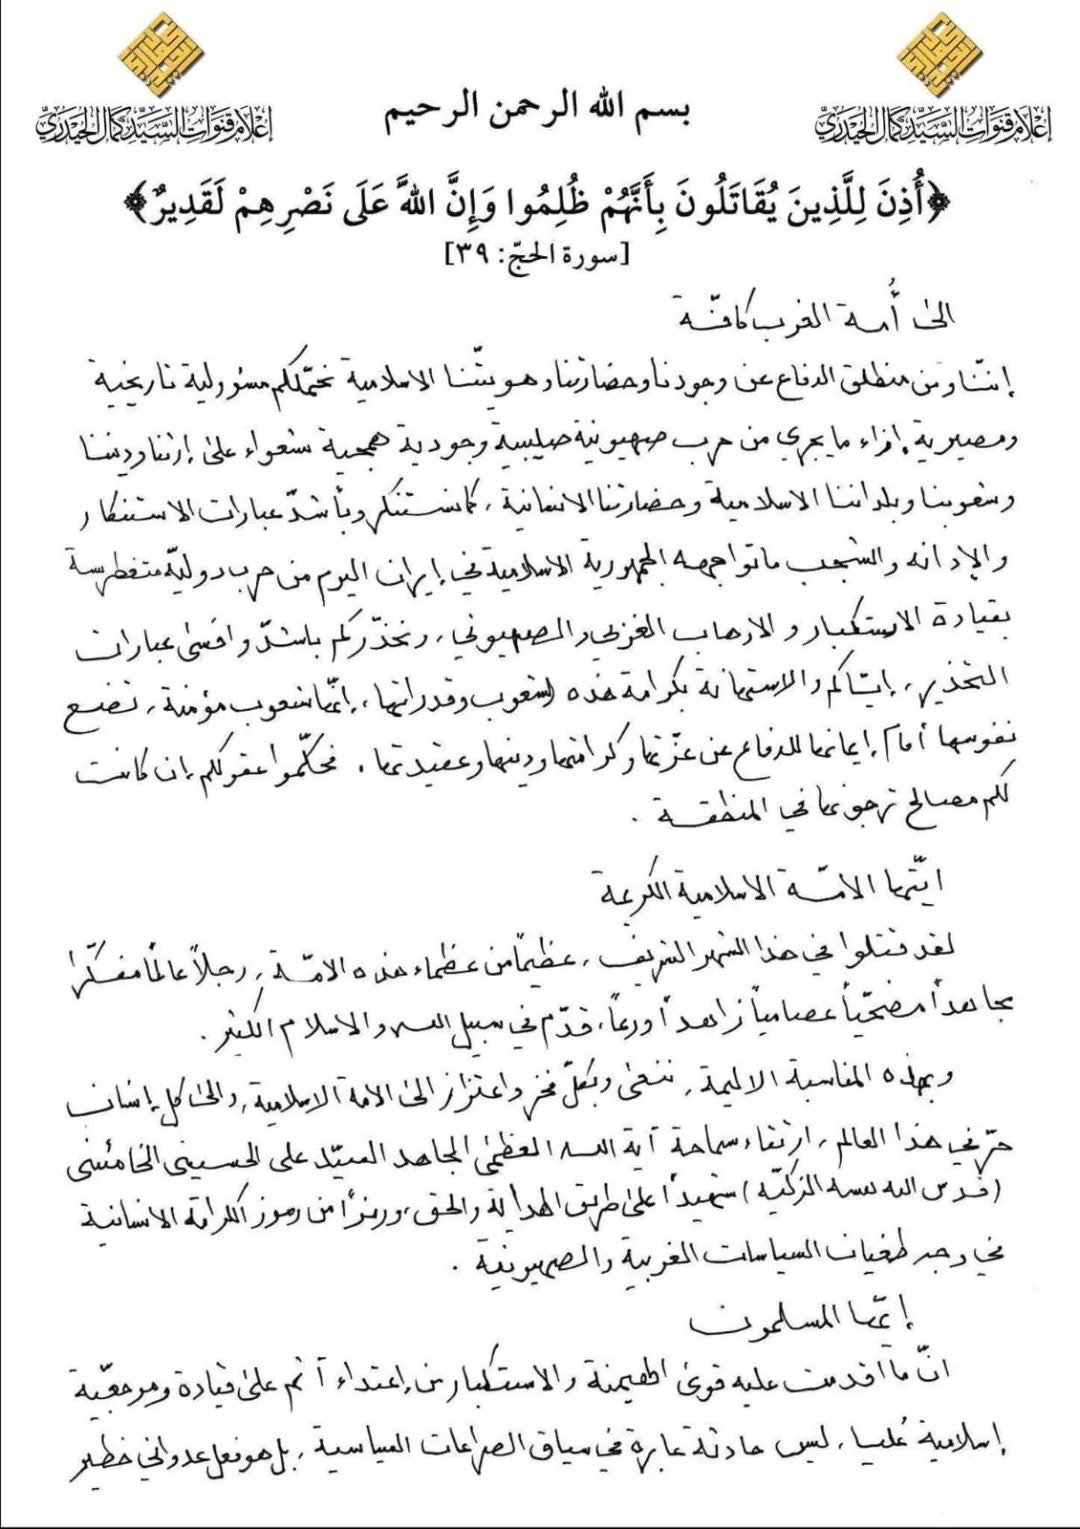 إعلام قنوات السيد كمال الحيدري
إعلام قنوات السيد كمال الحيدري
بسم الله الرحمن الرحيم
﴿أُذِنَ لِلَّذِينَ يُقَاتَلُونَ بِأَنَّهُمْ ظُلِمُوا وَإِنَّ اللَّهَ عَلَى نَصْرِهِمْ لَقَدِيرٌ﴾
[سورة الحجّ: ٣٩]
الى أُمة الغرب كافّة
إننّا ومن منطلق الدفاع عن وجودنا وحضارتنا وهويتّنا الاسلامية نحمّلكم مسؤولية تاريخية
ومصيرية إزاء ما يجري من حرب صهيونية صليبية وجودية همجية شعواء على إرثنا وديننا
وشعوبنا وبلداننا الاسلامية وحضارتنا الانسانية، كما نستنكر وبأشدّ عبارات الاستنكار
والإدانه والشجب ما تواجهه الجمهورية الاسلامية في إيران اليوم من حرب دوليّة متغطرسة
بقيادة الاستكبار والارهاب الغربي والصهيوني، ونحذّركم باشدّ واقسى عبارات
التحذير، إيّاكم والاستهانة بكرامة هذه الشعوب وقدراتها، إنّها شعوب مؤمنة، تضع
نفوسها أمام إيمانها للدفاع عن عزّتها وكرامتها ودينها وعقيدتها. فحكّموا عقولكم إن كانت
لكم مصالح ترجونها في المنطقة.
ايّتها الامّة الاسلامية الكريمة
لقد قتلوا في هذا الشهر الشريف، عظيماً من عظماء هذه الامّة، رجلاً عالماً مفكّرا
مجاهداً مضحّياً عصامياً زاهداً ورعاً، قدّم في سبيل الله والاسلام الكثير.
وبهذه المناسبة الاليمة، ننعى وبكلّ فخر واعتزاز الى الامة الاسلامية، والى كل إنسان
حرّ في هذا العالم، ارتقاء سماحة آية الله العظمى المجاهد السيّد علي الحسيني الخامنئي
(قدس الله نفسه الزكيّه) شهيداً على طريق الهداية والحق، ورمزاً من رموز الكرامة الانسانية
في وجه طغيان السياسات الغربية والصهيونية.
إيّها المسلمون
انّ ما اقدمت عليه قوى الهيمنة والاستكبار من إعتداء آثم على قيادة ومرجعيّة
إسلامية عُليا، ليس حادثة عابرة في سياق الصراعات السياسية، بل هو فعل عدواني خطير